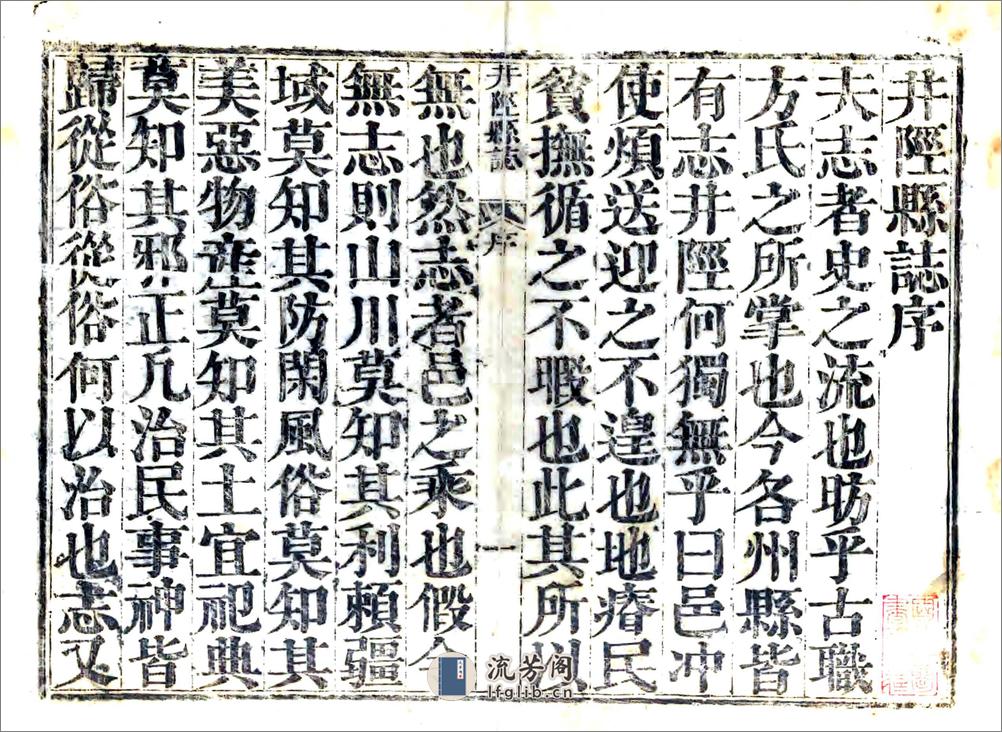 井陘縣誌序
夫志者史之流也昉乎古職
方氏之所掌也今各州縣皆
有志井陘何獨無乎曰邑冲
使煩送迎之不遑也地瘠民
貧撫循之不暇也此其所以
井陘縣誌 序 一
無也然志者邑之乘也假令
無志則山川莫知其利賴疆
域莫知其防閑風俗莫知其
美惡物產莫知其土宜祀典
莫知其邪正凡治民事神皆
歸從俗從俗何以治也志又
流芳阁
lfglib.cn